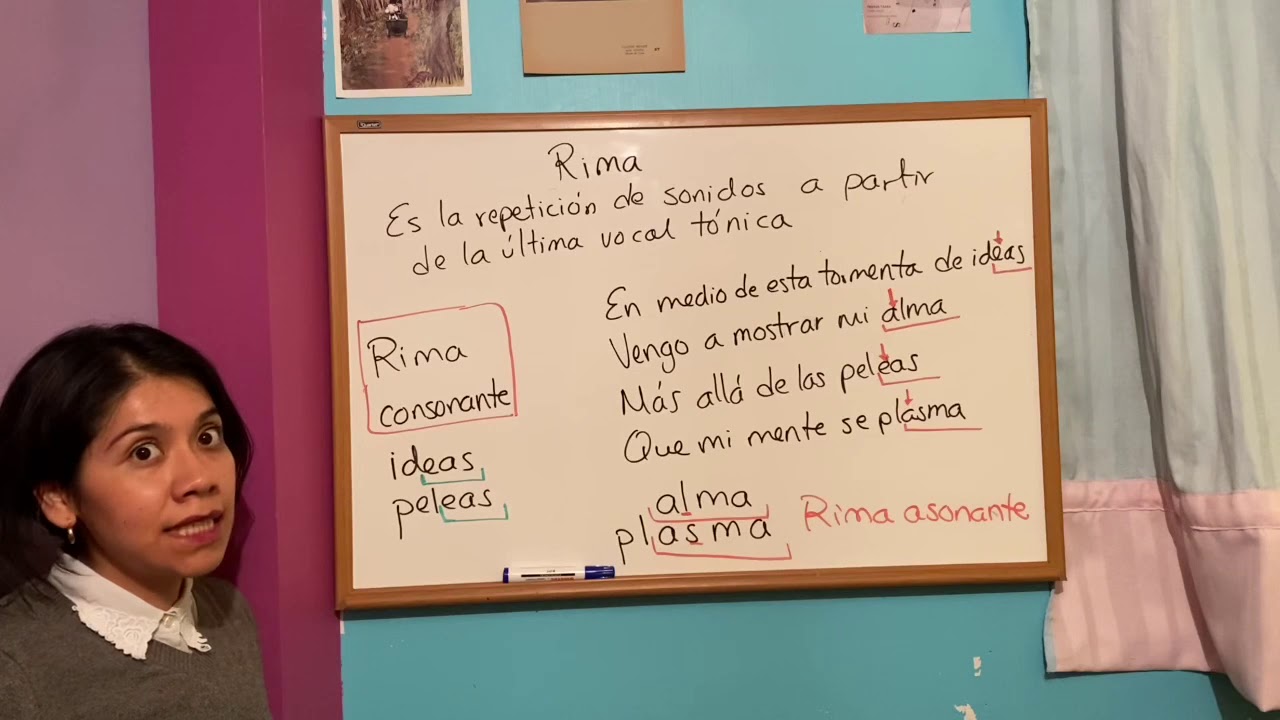 Rima
Es la repetición de sonidos a partir
de la última vocal tónica
En medio de esta tormenta de ideas
Vengo a mostrar mi alma
Más allá de las peleas
Que mi mente se plasma
Rima
consonante
ideas
peleas
alma
plasma
Rima asonante